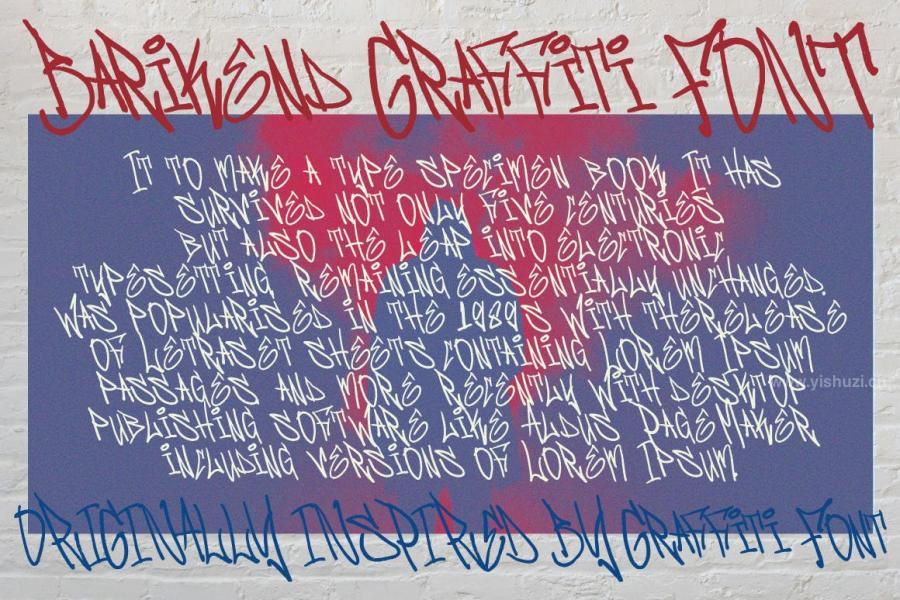 BARIKEND GRAFFITI FONT
IT TO MAKE A TYPE SPECIMEN BOOK. IT HAS
SURVIVED NOT ONLY FIVE CENTURIES
BUT ALSO THE LEAP INTO ELECTRONIC
TYPESETTING REMAINING ESSENTIALLY UNCHANGED.
WAS POPULARISED IN THE 1989S WITH THERELEASE
OF LETRASET SHEETS CONTAINING LOREM IPSUM
PASSAGES AND MORE RECENTLY WITH DESKTOP
www.yishuzi.cn
PUBLISHING SOFTWARE LIKE ALDUS PAGEMAKER
INCLUDING VERSIONS OF LOREM IPSUM.
ORIGINALLY INSPIRED BY GRAFFITI FONT